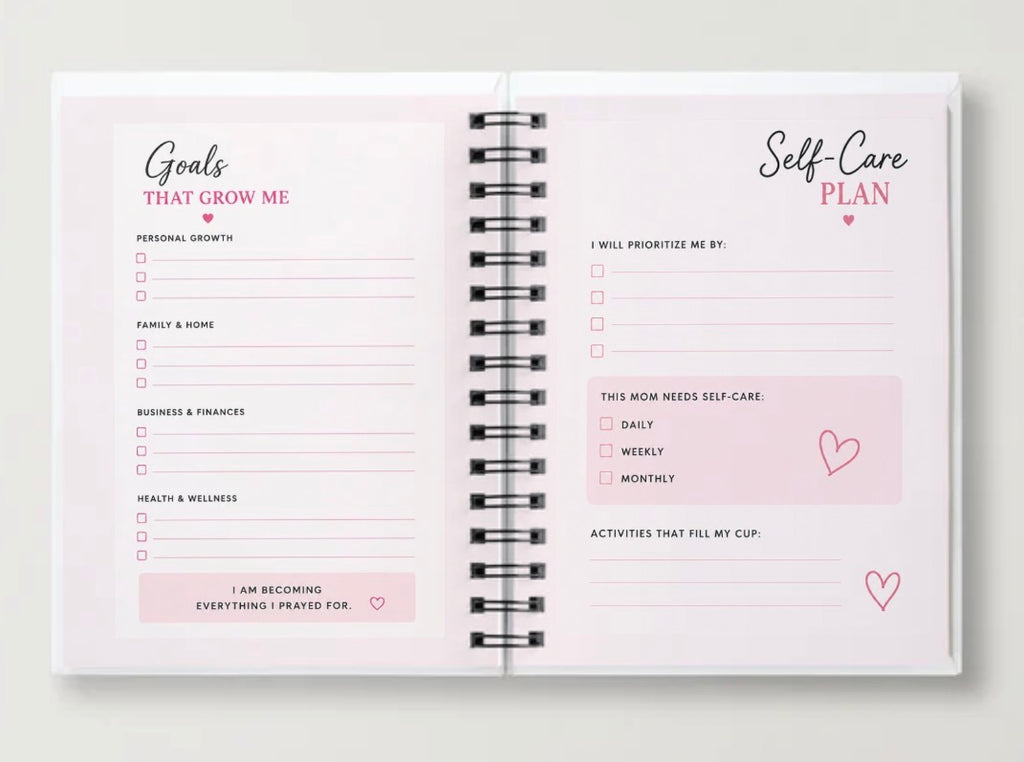 Goals
THAT GROW ME
PERSONAL GROWTH
FAMILY & HOME
BUSINESS & FINANCES
HEALTH & WELLNESS
I AM BECOMING
EVERYTHING I PRAYED FOR.
Self-Care
PLAN
I WILL PRIORITIZE ME BY:
THIS MOM NEEDS SELF-CARE:
DAILY
WEEKLY
MONTHLY
ACTIVITIES THAT FILL MY CUP: